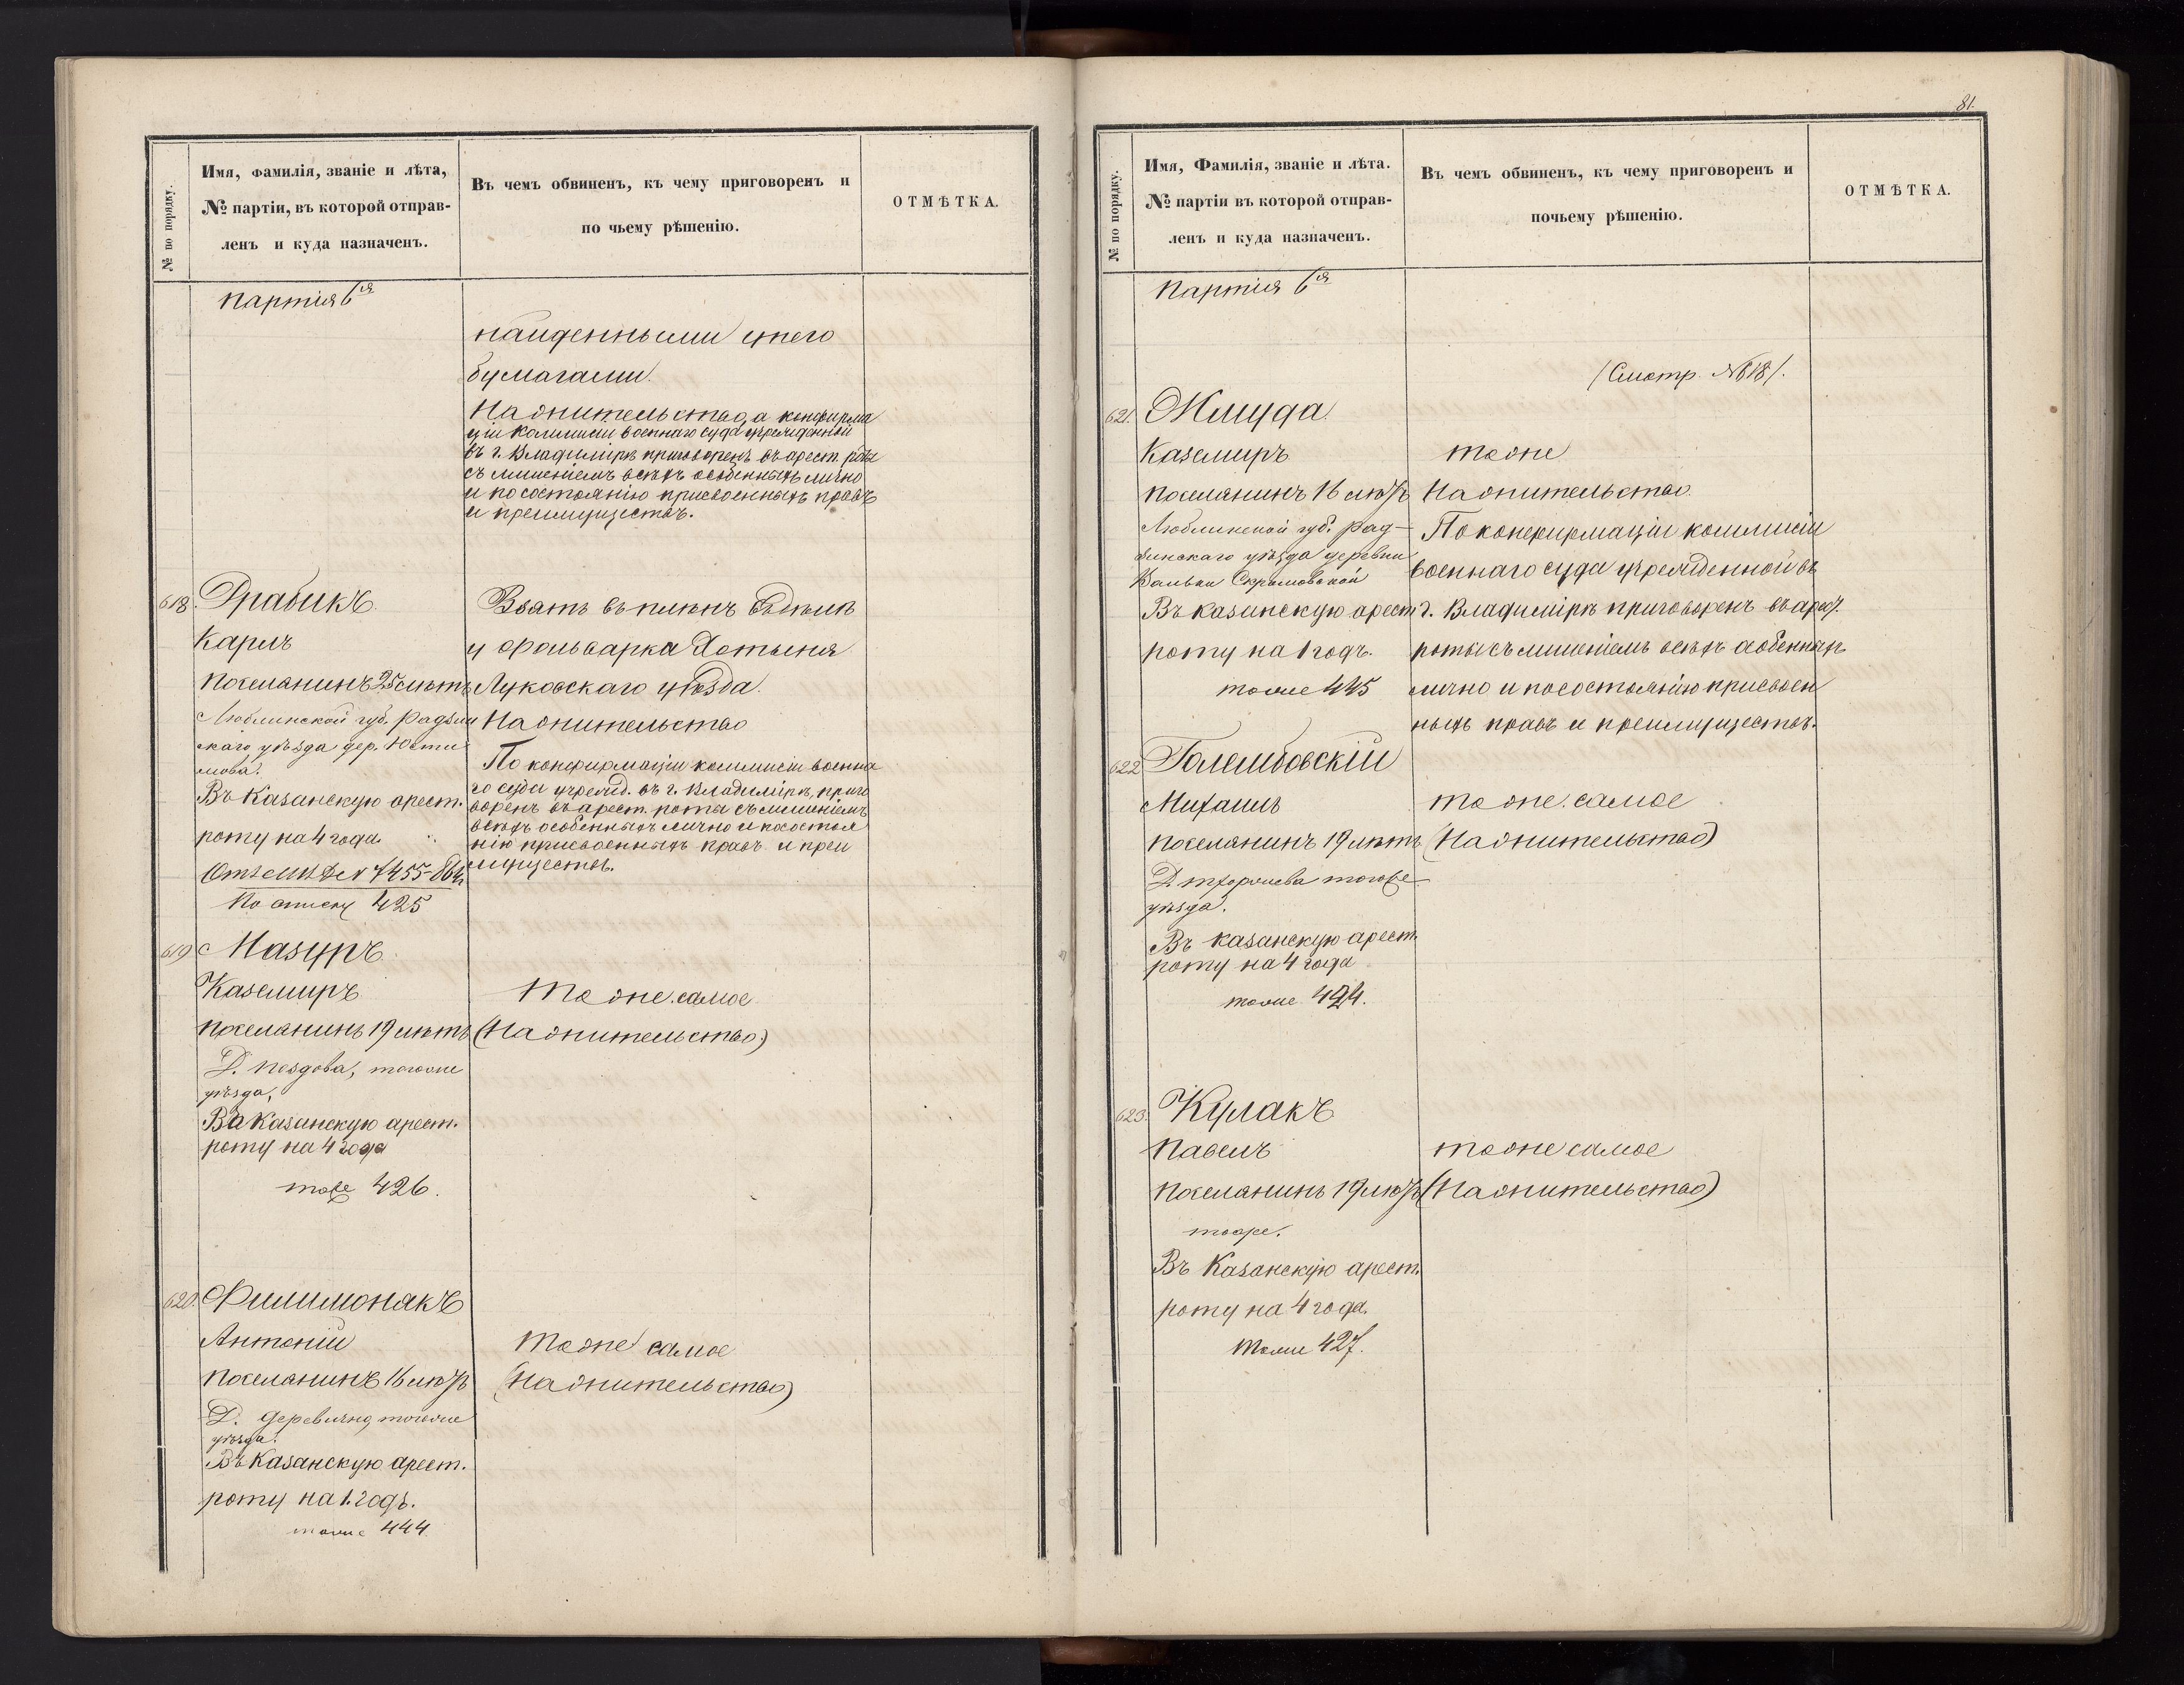 № по порядку.
Имя, Фамилія, званіе и лѣта,
№ партіи, въ которой отправ-
ленъ и куда назначенъ.
Въ чемъ обвиненъ, къ чему приговоренъ и
по чьему рѣшенію.
ОТМѢТКА.
партія 6ая
найденными у него
бумагами.
На жительство, а конфирма
ціи Коммисіи военнаго суда учрежденной
въ г. Владимірѣ приговоренъ въ арест. роты
съ лишеніемъ всѣхъ особенныхъ лично
и по состоянію присвоенныхъ правъ
и преимуществъ.
618. Драбикъ
Карлъ
поселянинъ 25 лѣтъ
Люблинской губ. Радзин
скаго уѣзда дер. Юсти
нова.
Въ Казанскую арест.
роту на 4 года.
7455-864
По списку 425
Взятъ въ плѣнъ
у фольварка
Луковскаго уѣзда.
На жительство
По конфирмаціи коммисіи военна
го суда учрежд. въ г. Владимірѣ, приго
воренъ въ арест. роты съ лишеніемъ
всѣхъ особенныхъ лично и по состоя
нію присвоенныхъ правъ и преи
муществъ.
619 Мазуръ
Каземиръ
поселянинъ 19 лѣтъ
Д. поздова, тогоже
уѣзда,
Въ Казанскую арест.
роту на 4 года
тоже 426.
тоже самое
(На жительство)
620. Филимонякъ
Антоній
поселянинъ 16 лѣтъ
Д. деревично, тогоже
уѣзда.
Въ Казанскую арест.
роту на 1. годъ.
тоже 444
тоже самое
(на жительство)
81.
№ по порядку.
Имя, Фамилія, званіе и лѣта.
№ партіи въ которой отправ-
ленъ и куда назначенъ.
Въ чемъ обвиненъ, къ чему приговоренъ и
почьему рѣшенію.
ОТМѢТКА.
партія 6ая
/Смотр. №618/.
621. Жмуда
Каземиръ
поселянинъ 16 лѣтъ
Люблинской губ. Рад-
зинскаго уѣзда деревни
Вольки Скромовской
Въ Казанскую арест
роту на 1 годъ.
тоже 445
тоже
На жительство.
По конфирмаціи коммисіи
военнаго суда учрежденной въ
г. Владимірѣ приговоренъ въ арест.
роты съ лишеніемъ всѣхъ особенныхъ
лично и по состоянію присвоен
ныхъ правъ и преимуществъ.
622 Голембовскій
Михаилъ
поселянинъ 19 лѣтъ
Д. тогоже
уѣзда.
Въ казанскую арест.
роту на 4 года
тоже 424.
тоже самое
(На жительство)
623. Кулакъ
Павелъ
поселянинъ 19 лѣтъ
тоже.
Въ Казанскую арест.
роту на 4 года.
тоже 427.
тоже самое
(На жительство)